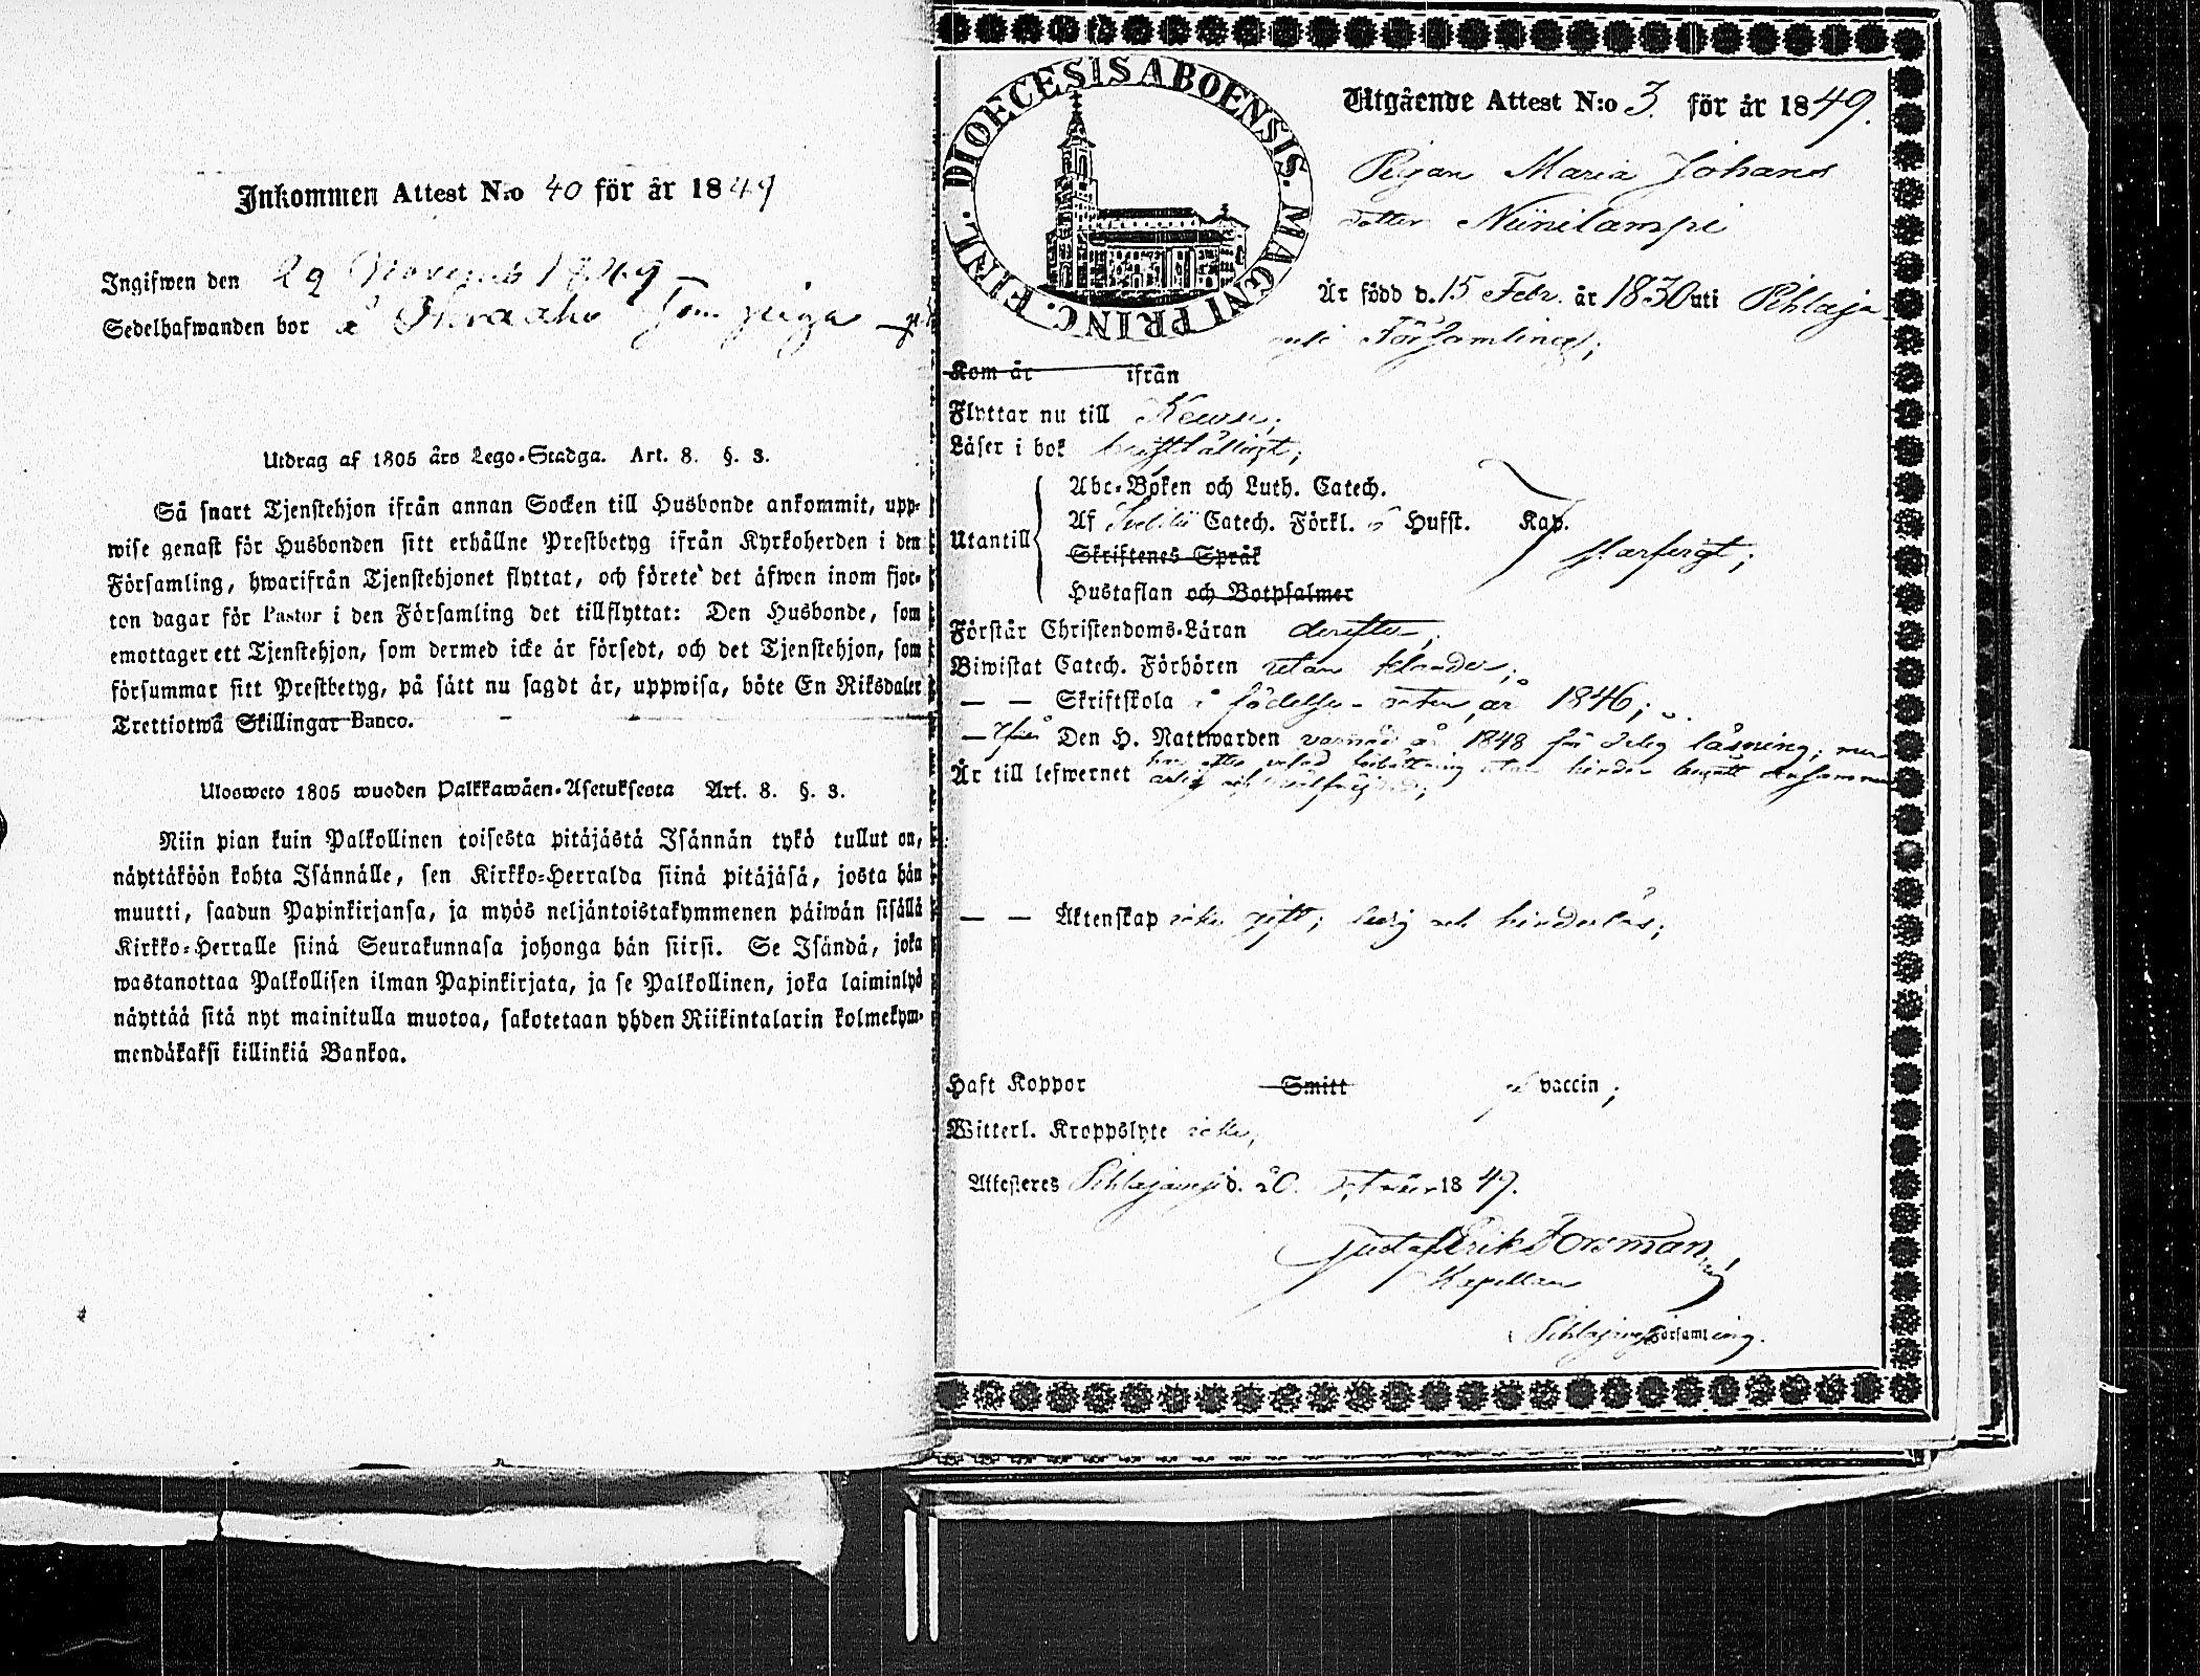 Inkommen Attest N:o 40 för år 1849
Ingifwen den 29 Novemb 1849
Sedelhafwanden bor å som piga
Utdrag af 1805 års Lego-Stadga. Art. 8. §. 3.
Så snart Tjenstehjon ifrån annan Socken till Husbonde ankommit, upp-
wise genast för Husbonden sitt erhållne Prestbetyg ifrån Kyrkoherden i den
Församling, hwarifrån Tjenstehjonet flyttat, och förete det äfwen inom fjor-
ton dagar för Pastor i den Församling det tillflyttat: Den Husbonde, som
emottager ett Tjenstehjon, som dermed icke är försedt, och det Tjenstehjon, som
försummar sitt Prestbetyg, på sätt nu sagdt är, uppwisa, böte En Riksdaler
Trettiotwå Skillingar Banco.
Ulosweto 1805 wuoden Palkkawäen-Asetuksesta Art. 8. §. 3.
Niin pian kuin Palkollinen toisesta pitäjästä Isännän tykö tullut on,
näyttäköön kohta Isännälle, sen Kirkko-Herralda siinä pitäjäsä, josta hän
muutti, saadun Papinkirjansa, ja myös neljäntoistakymmenen päiwän sisällä
Kirkko-Herralle siinä Seurakunnasa johonga hän siirsi. Se Isändä, joka
wastanottaa Palkollisen ilman Papinkirjata, ja se Palkollinen, joka laiminlyö
näyttää sitä nyt mainitulla muotoa, sakotetaan yhden Riikintalarin kolmekym-
mendäkaksi killinkiä Bankoa.
DIOECESIS ABOENSIS. MAGNI PRINC. FINL.
Utgående Attest N:o 3. för år 1849.
Pigan Maria Johans
dotter Niinilampi
Är född d. 15 Febr. år 1830 uti Pihlaja
Församling;
Kom år ifrån
Flyttar nu till Keuru;
Läser i bok
Abc-Boken och Luth. Catech.
Utantill Af Svebilii Catech. Förkl. 6 Hufst. Kap.
Skriftenes Språk
Hustaflan och Botpsalmer
Förstår Christendoms-Läran derefter;
Biwistat Catech. Förhören utan klander;
— — Skriftskola i födelse-orten år 1846;
— Den H. Nattwarden år 1848 för läsning; men
Är till lefwernet
— — Äktenskap icke gift; ledig och hinderlös;
Haft Koppor Smitt vaccin;
Witterl. Kroppslyte icke;
Attesteres Pihlajawesi d. 20. 1849.
Gustaf Erik Forsman
Kapellan
i Pihlajawesi Församling.